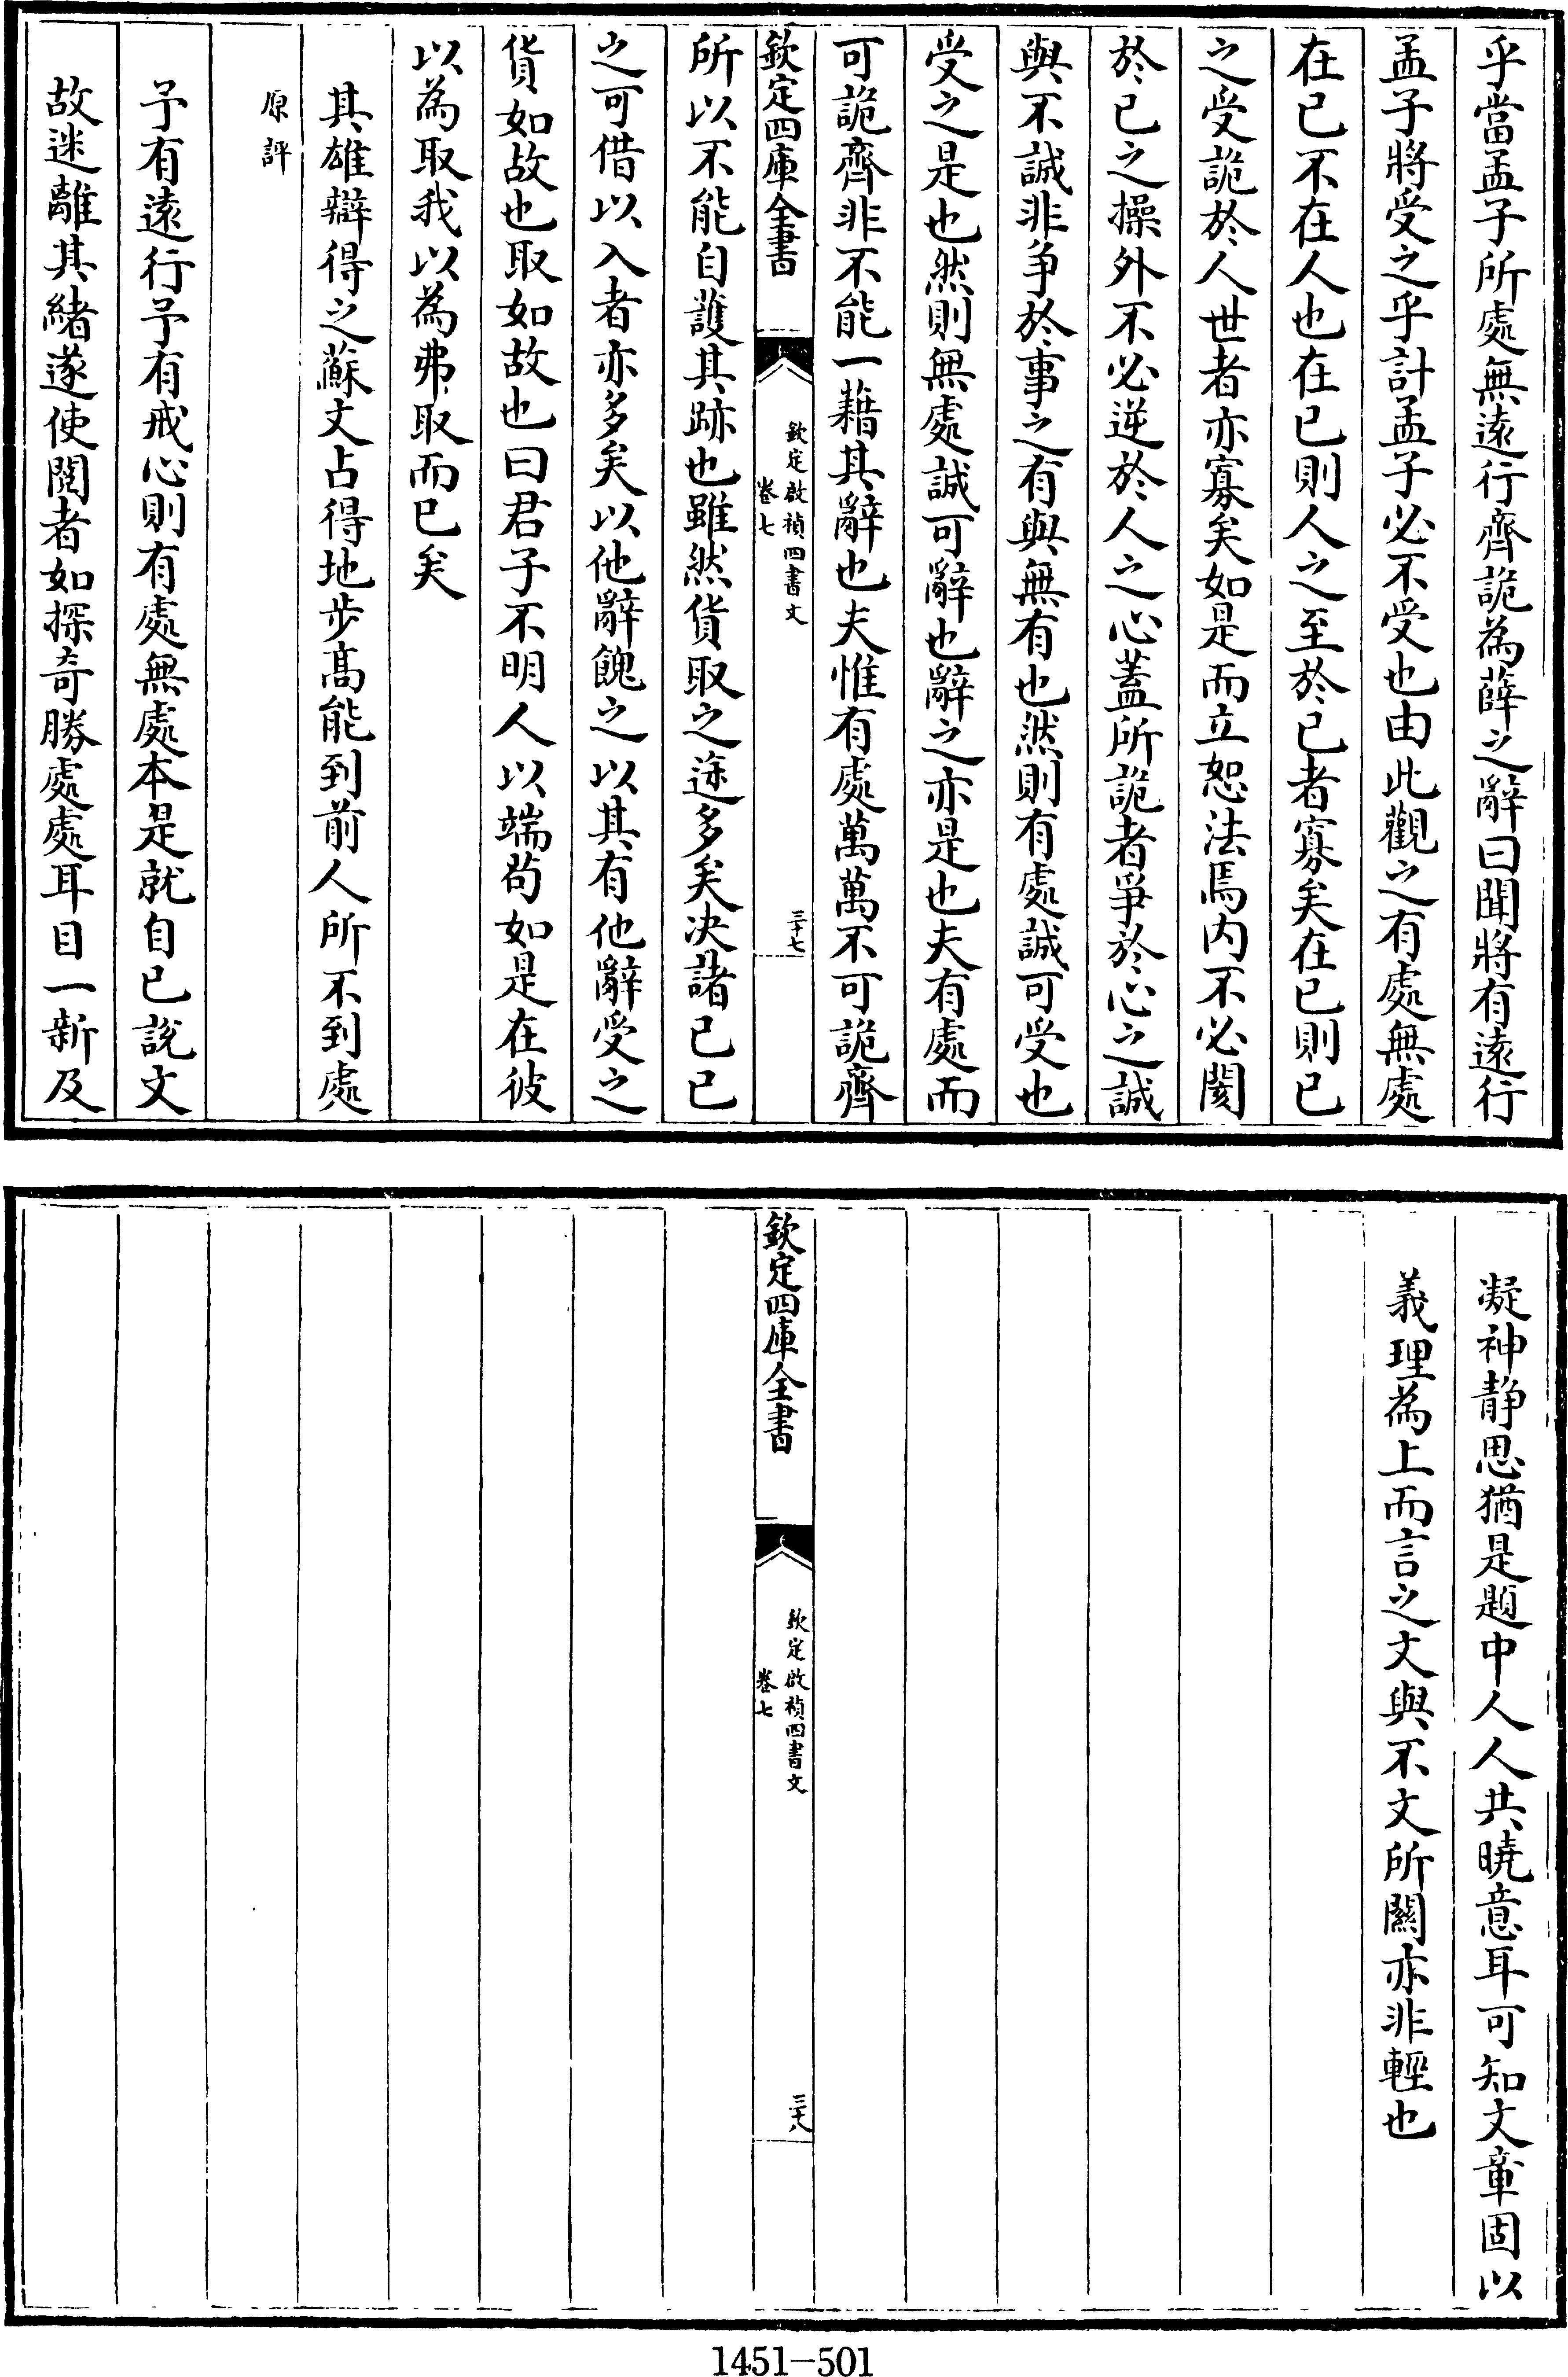 乎當孟子所處無遠行齊詭為薛之辭曰聞將有遠行
孟子將受之乎計孟子必不受也由此觀之有處無處
在已不在人也在已則人之至於已者寡矣在已則已
之受詭於人世者亦寡矣如是而立恕法焉内不必闅
於已之操外不必逆於人之心蓋所詭者爭於心之誠
與不誠非争於事之有與無有也然則有處誠可受也
受之是也然則無處誠可辭也辭之亦是也夫有處而
可詭齊非不能一藉其辭也夫惟有處萬萬不可詭齊
欽定四庫全書
欽定啟禎四書文
卷七
三十七
所以不能自護其跡也雖然貨取之途多矣决諸已已
之可借以入者亦多矣以他辭餽之以其有他辭受之
貨如故也取如故也曰君子不明人以端苟如是在彼
以為取我以為弗取而已矣
其雄辯得之蘇文占得地步高能到前人所不到處
原評
予有遠行予有戒心則有處無處本是就自已說文
故迷離其緒遂使閱者如探奇勝處處耳目一新及
凝神靜思猶是題中人人共曉意耳可知文章固以
義理為上而言之文與不文所關亦非輕也
欽定四庫全書
欽定啟禎四書文
卷七
三十八
1451-501